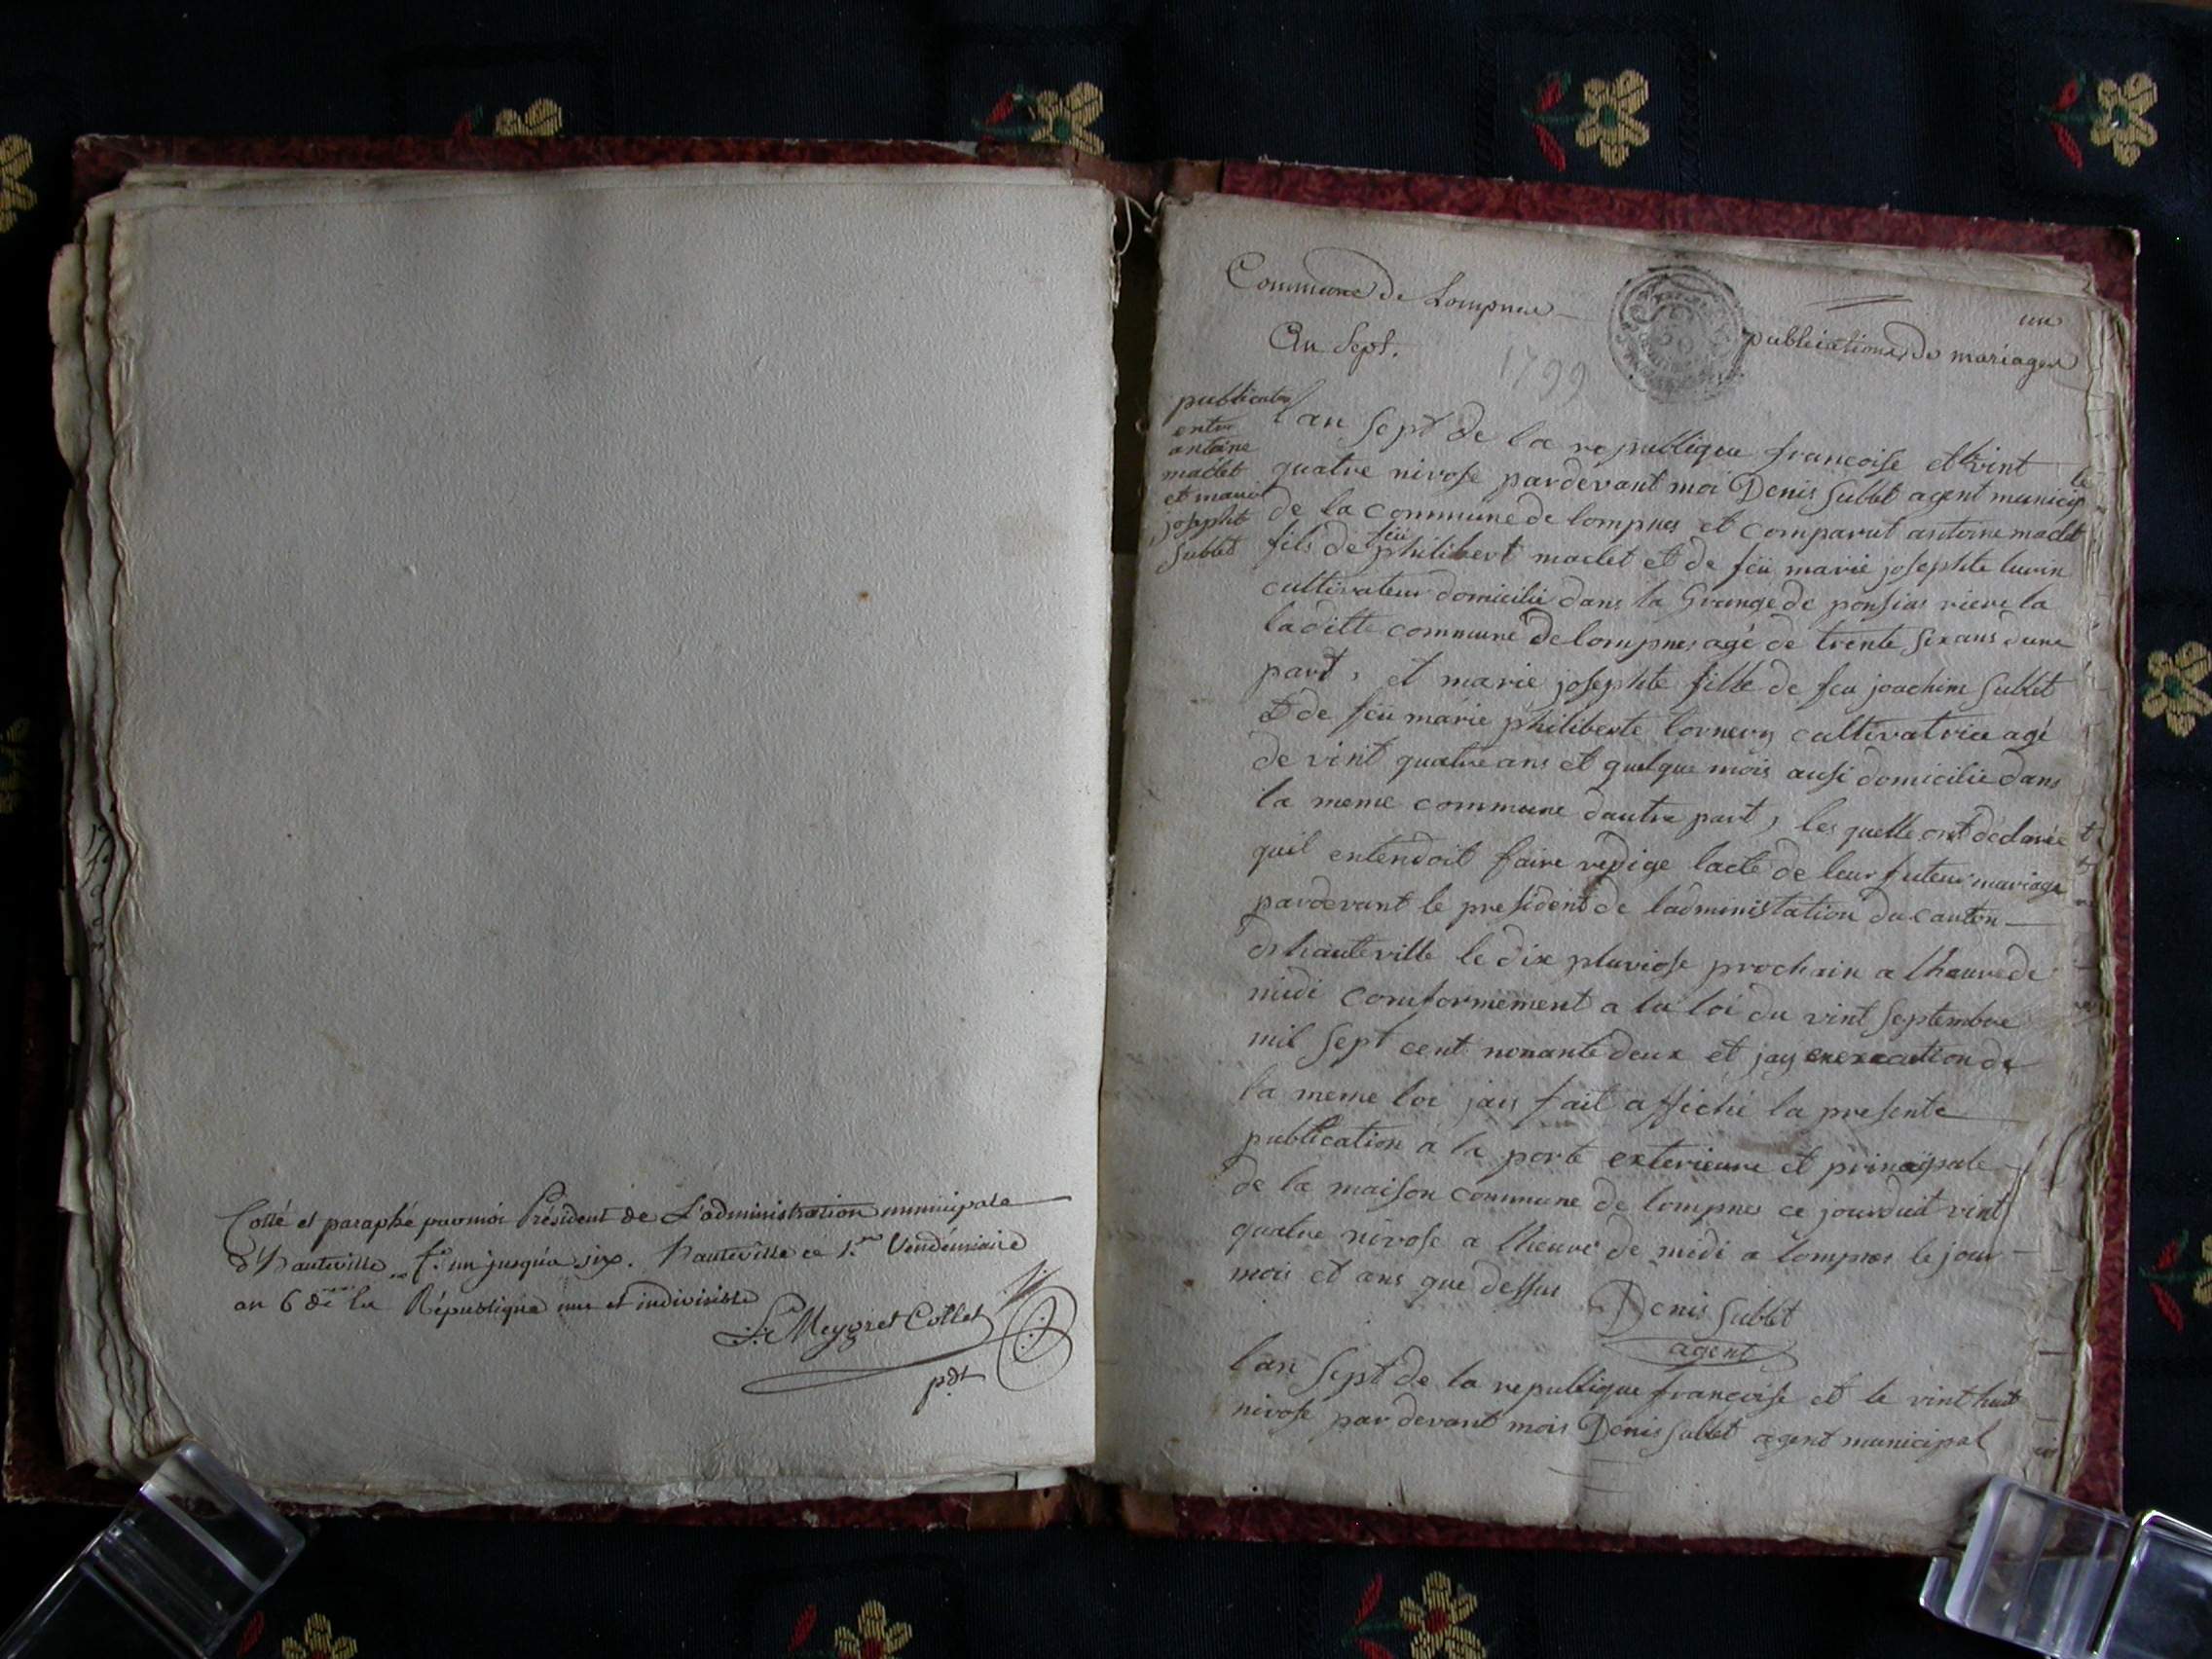 Cotté et paraphé par moi Président de L'administration municipale
d'hauteville f.º un jusqu'a six. hauteville ce 1.er Vendémiaire
an 6 de la République une et indivisible
Meygret Collet
pdt
un
Commune de Lompnes
publications de mariages
An Sept.
1799
publication
entre
antoine
maclet
et marie
josephte
Sublet
lan sept de la republique francoise et le vint
quatre nivose pardevant moi Denis Sublet agent municip
de la commune de lompnes et comparut antoine maclet
fils de feü philibert maclet et de feü marie josephte luvin
cultivateur domicilié dans la Grange de ponsias riere la
laditte commune de lompnes agé de trente six ans dune
part, et marie josephte fille de feu joachim Sublet
et de feü marie philiberte lornery cultivatrice agé
de vint quatre ans et quelque mois ausi domicilie dans
la meme commune dautre part, les quelle ont déclarée
quil entendoit faire redige lacte de leur futeur mariage
pardevant le president de ladministation du canton
dhauteville le dix pluviose prochain a lheure de
midi comformement a la loi du vint septembre
mil sept cent nonante deux et jay en execution de
la meme loi jais fait affiché la presente
publication a la porte exterieure et principale
de la maison commune de lompnes ce jourduit vint
quatre nivose a lheure de midi a lompnes le jour
mois et ans que dessus
Denis Sublet
agent
lan sept de la republique francoise et le vint huit
nivose par devant mois Denis Sublet agent municipal